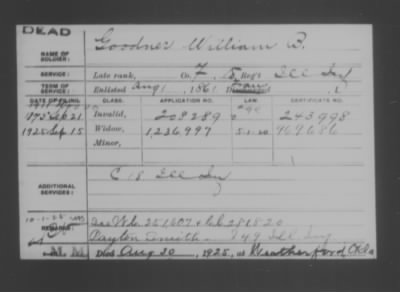 DEAD
NAME OF SOLDIER: Goodner William B.
SERVICE: Late rank, Co. F, 15 Reg't Ill Inf
TERM OF SERVICE: Enlisted Aug 1, 1861
DATE OF FILING. CLASS. APPLICATION NO. LAW. CERTIFICATE NO.
Sep 21 Invalid, 208289 243998
1925 Sep 15 Widow, 1236997 5-1-20 969686
Minor,
ADDITIONAL SERVICES: C 18 Ill Inf
REMARKS: 251,207 281820
Payton Smith 49 Ill Inf
M. M. Died Aug 20, 1925, at Weatherford, Okla